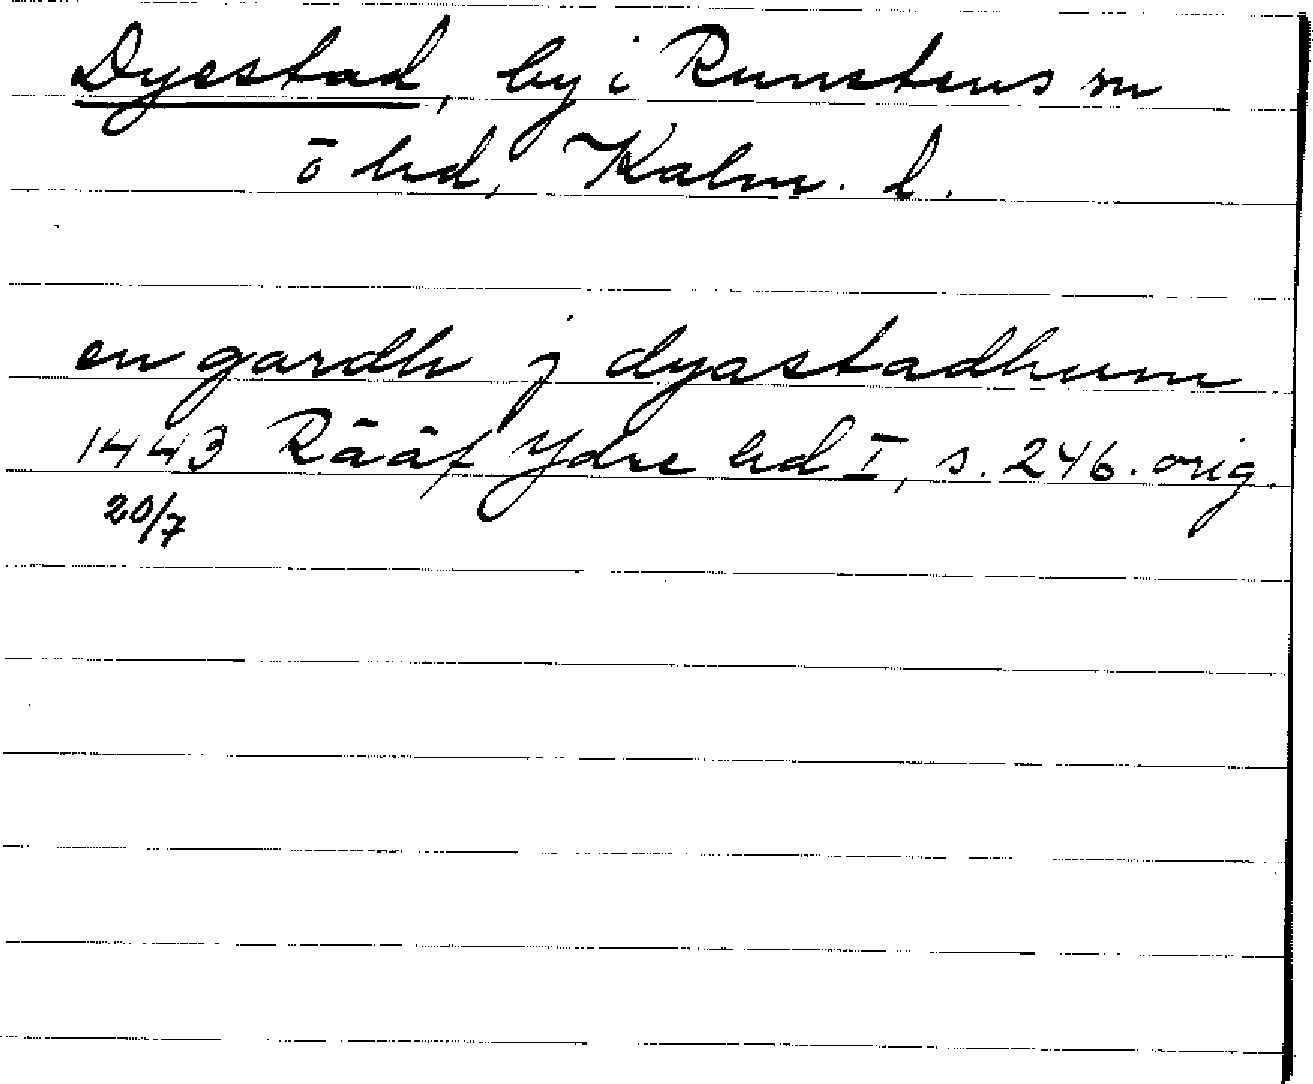 Dyestad, by i Runstens sn
ö hd, Kalm. l.
en gardh j dyastadhum
1443 Rääf Ydre hd I, s. 246. orig.
20/7